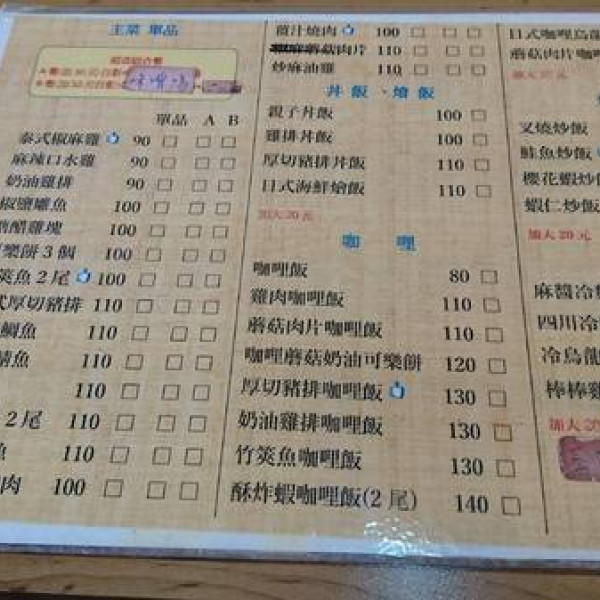 主菜 單品
單品 A B
泰式椒麻雞 90 □ □ □
麻辣口水雞 90 □ □ □
奶油雞排 90 □ □ □
椒鹽雕魚 100 □ □ □
醋雞塊 100 □ □ □
樂餅3個 100 □ □ □
筴魚2尾 100 □ □ □
式厚切豬排 110 □ □ □
鯛魚 110 □ □ □
魚 110 □ □ □
110 □ □ □
2尾 110 □ □ □
魚 110 □ □ □
肉 100 □ □ □
薑汁燒肉 100 □ □ □
蘑菇肉片 110 □ □ □
炒麻油雞 110 □ □ □
丼飯、燴飯
親子丼飯 100 □
雞排丼飯 100 □
厚切豬排丼飯 110 □
日式海鮮燴飯 110 □
加大20元
咖哩
咖哩飯 80 □
雞肉咖哩飯 110 □
蘑菇肉片咖哩飯 110 □
咖哩蘑菇奶油可樂餅 120 □
厚切豬排咖哩飯 130 □
奶油雞排咖哩飯 130 □
竹筴魚咖哩飯 130 □
酥炸蝦咖哩飯(2尾) 140 □
日式咖哩烏龍
蘑菇肉片咖哩
加大20元
叉燒炒飯
鮭魚炒飯
櫻花蝦炒飯
蝦仁炒飯
加大20元
麻醬冷
四川冷
冷烏龍
棒棒雞
加大20